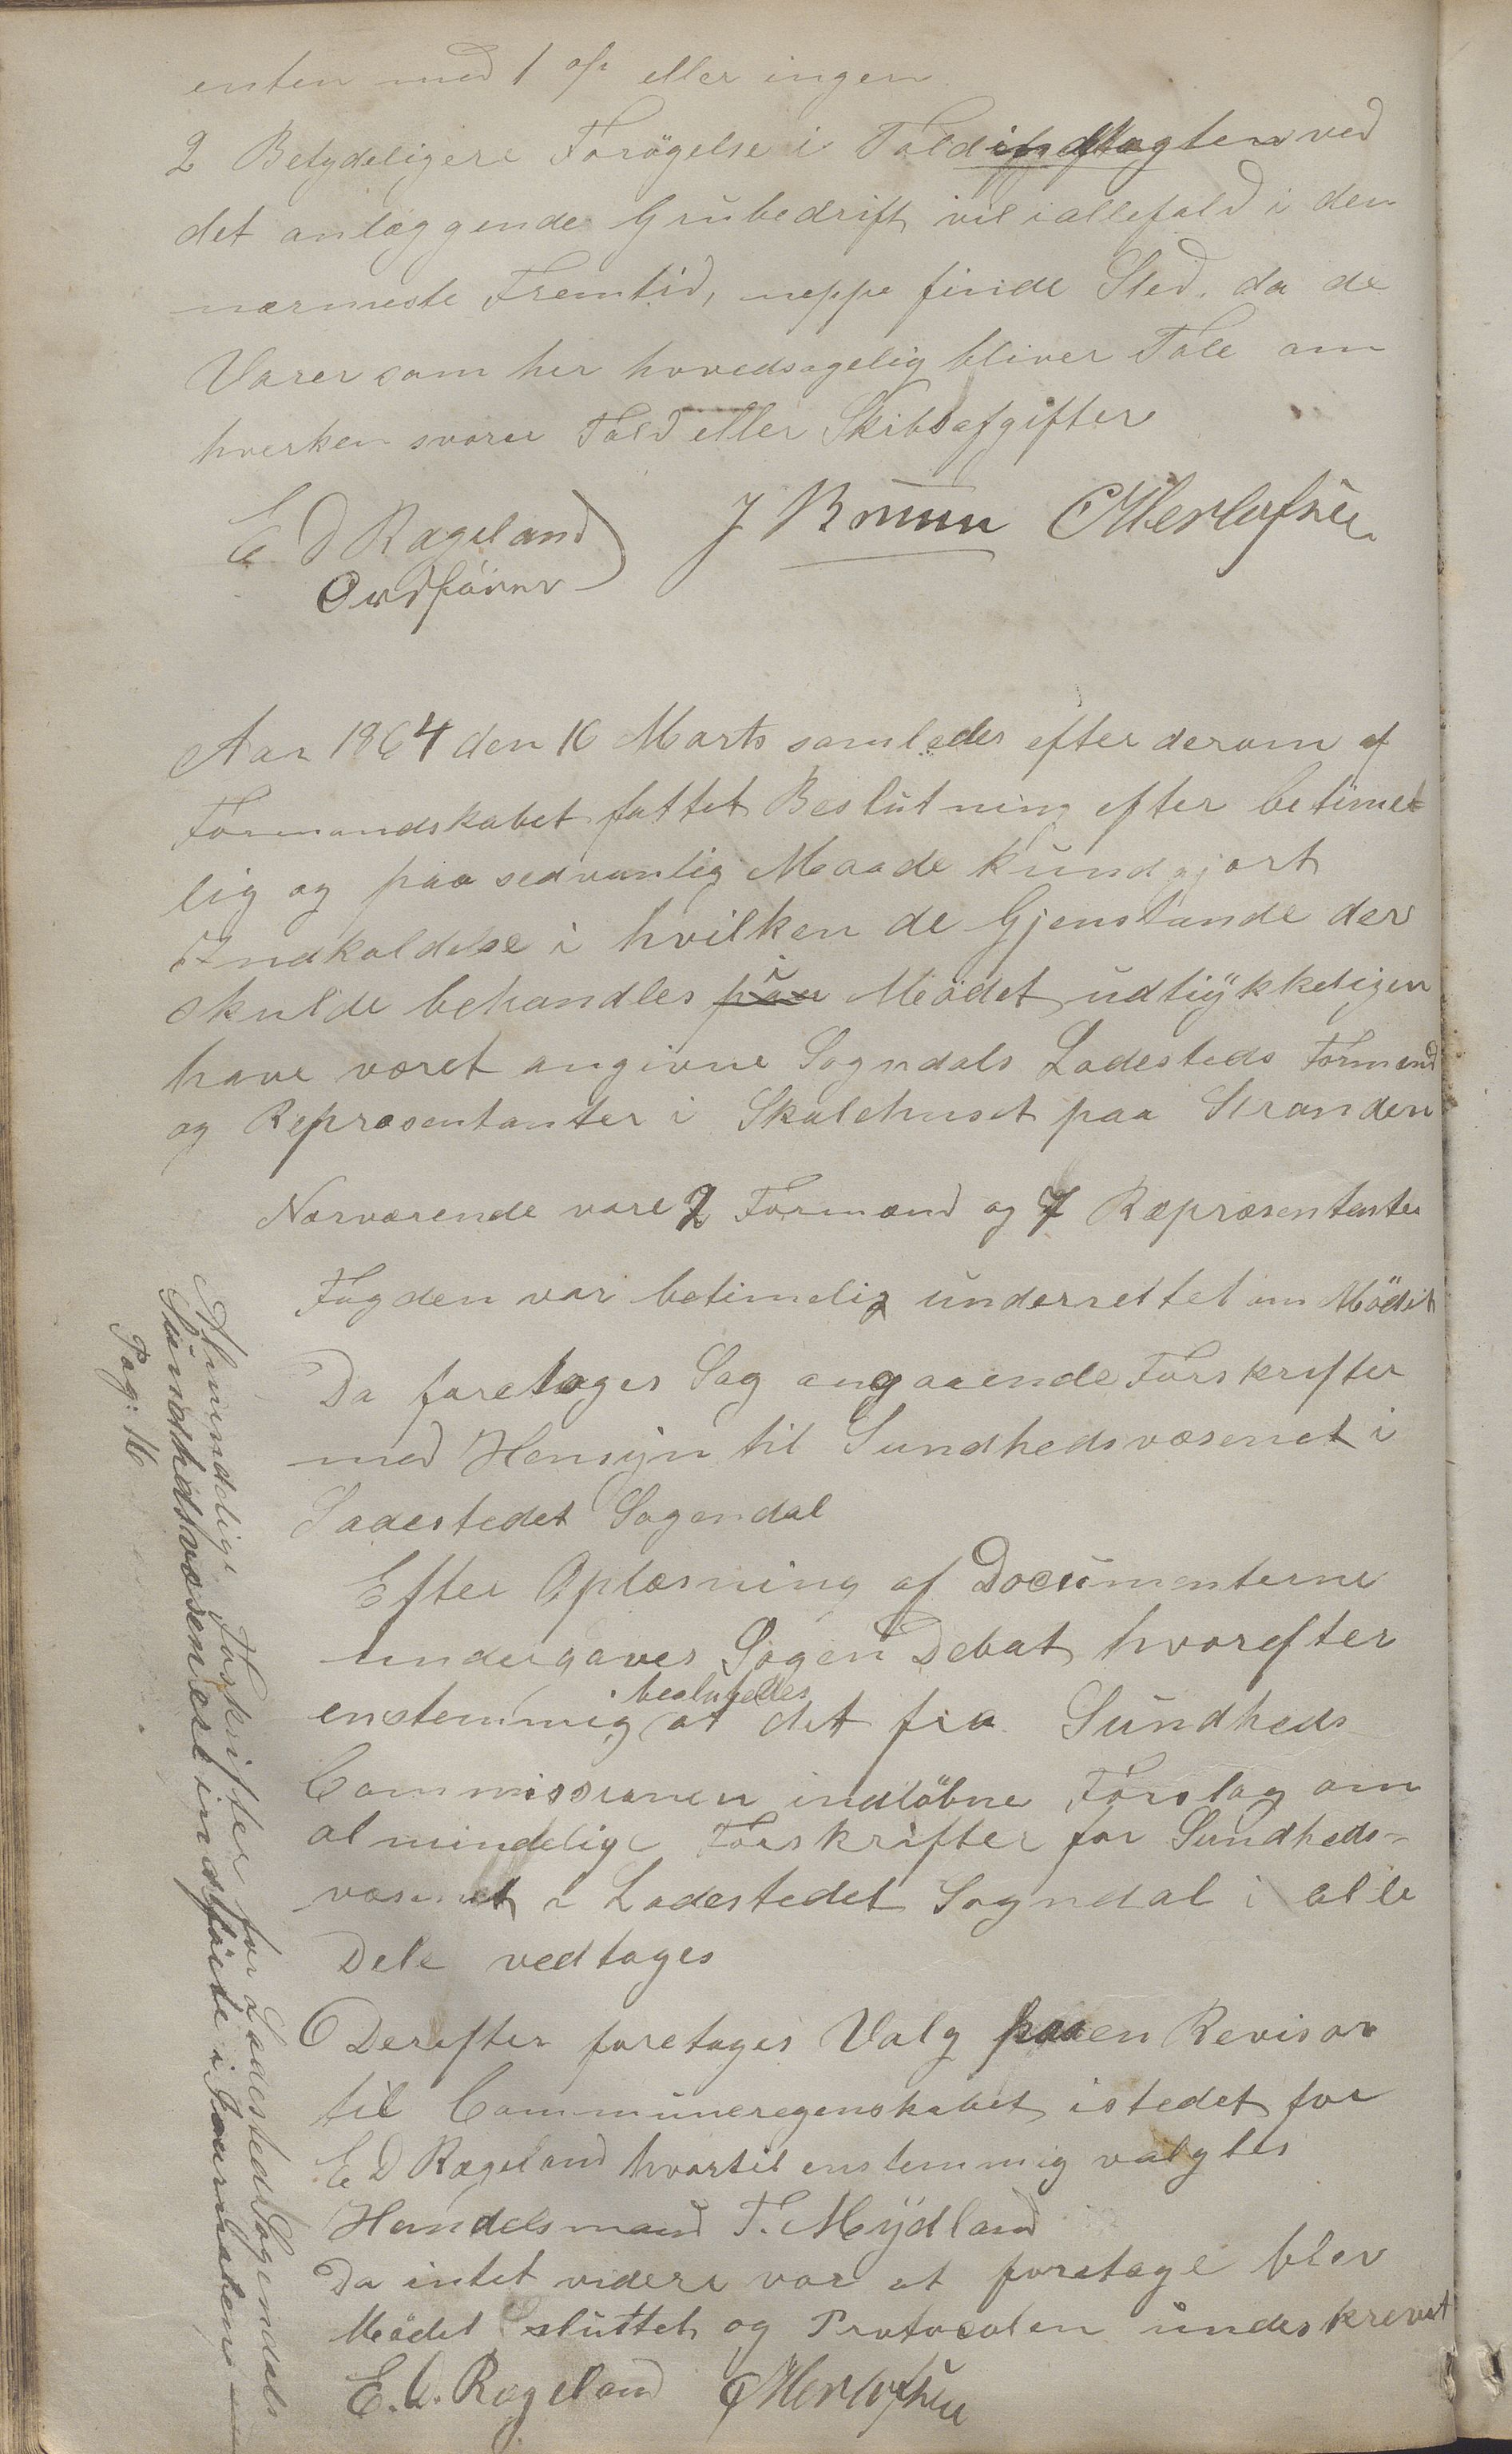 enten med 1 eller ingen
2 Betydeligere Forögelse i Toldindtagten ved
det anlæggende Grubedrift vil iallefald i den
nærmeste Fremtid, neppe finde Sted. da de
Varer som her hovedsagelig bliver Tale om
hverken svarer Told eller Skibsafgifter
E D Rægeland J Bruun C Herlofsen
Ordförer
Aar 1864 den 16 Marts samledes efter derom af
Formandskabet fattet Beslutning efter betime-
lig og paa sedvanlig Maade kundgjort
Indkaldelse i hvilken de Gjenstande der
skulde behandles paa i Mödet udtrykkeligen
have været angivne Sogndals Ladesteds Formænd
og Repræsentanter i Skolehuset paa Stranden
Nærværende vare 2 Formænd og 7 Repræsentanter
Fogden var betimelig underrettet om Mödet
Da foretoges Sag angaaende Forskrifter
med Hensyn til Sundhedsvæsenet i
Ladestedet Sogendal
Efter Oplæsning af Documenterne
undergaves Sagen Debat hvorefter
enstemmig besluttedes at det fra Sundheds
Commissionen indløbne Forslag om
almindelige Forskrifter for Sundheds-
væsenet i Ladestedet Sogndal i alle
Dele vedtages
Derefter foretoges Valg paa en Revisor
til Communeregenskabet istedet for
E D Rægeland hvortil enstemmig valgtes
Handelsmand T. Mÿdland
Da intet videre var at foretage blev
Mödet sluttet og Protocolen underskrevet
E. D. Rægeland C Herlofsen
Almindelige Forskrifter for Ladestedet Sogendals
Sundhedsvæsen er indförte i Journalen
Pag: 16